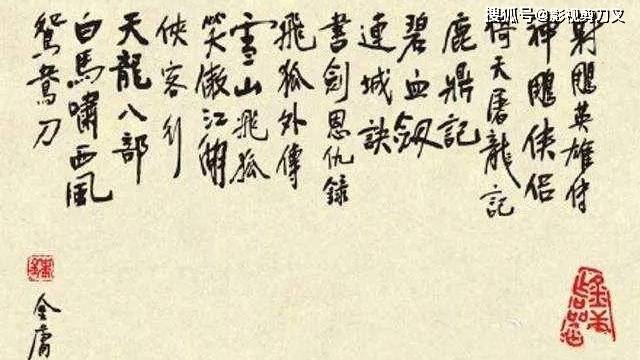 搜狐号@影视剪刀叉
射鵰英雄传
神鵰俠侶
倚天屠龍記
鹿鼎記
碧血劍
連城訣
書劍恩仇録
飛狐外傳
雪山飛狐
笑傲江湖
俠客行
天龍八部
白馬嘯西風
鴛鴦刀
金庸